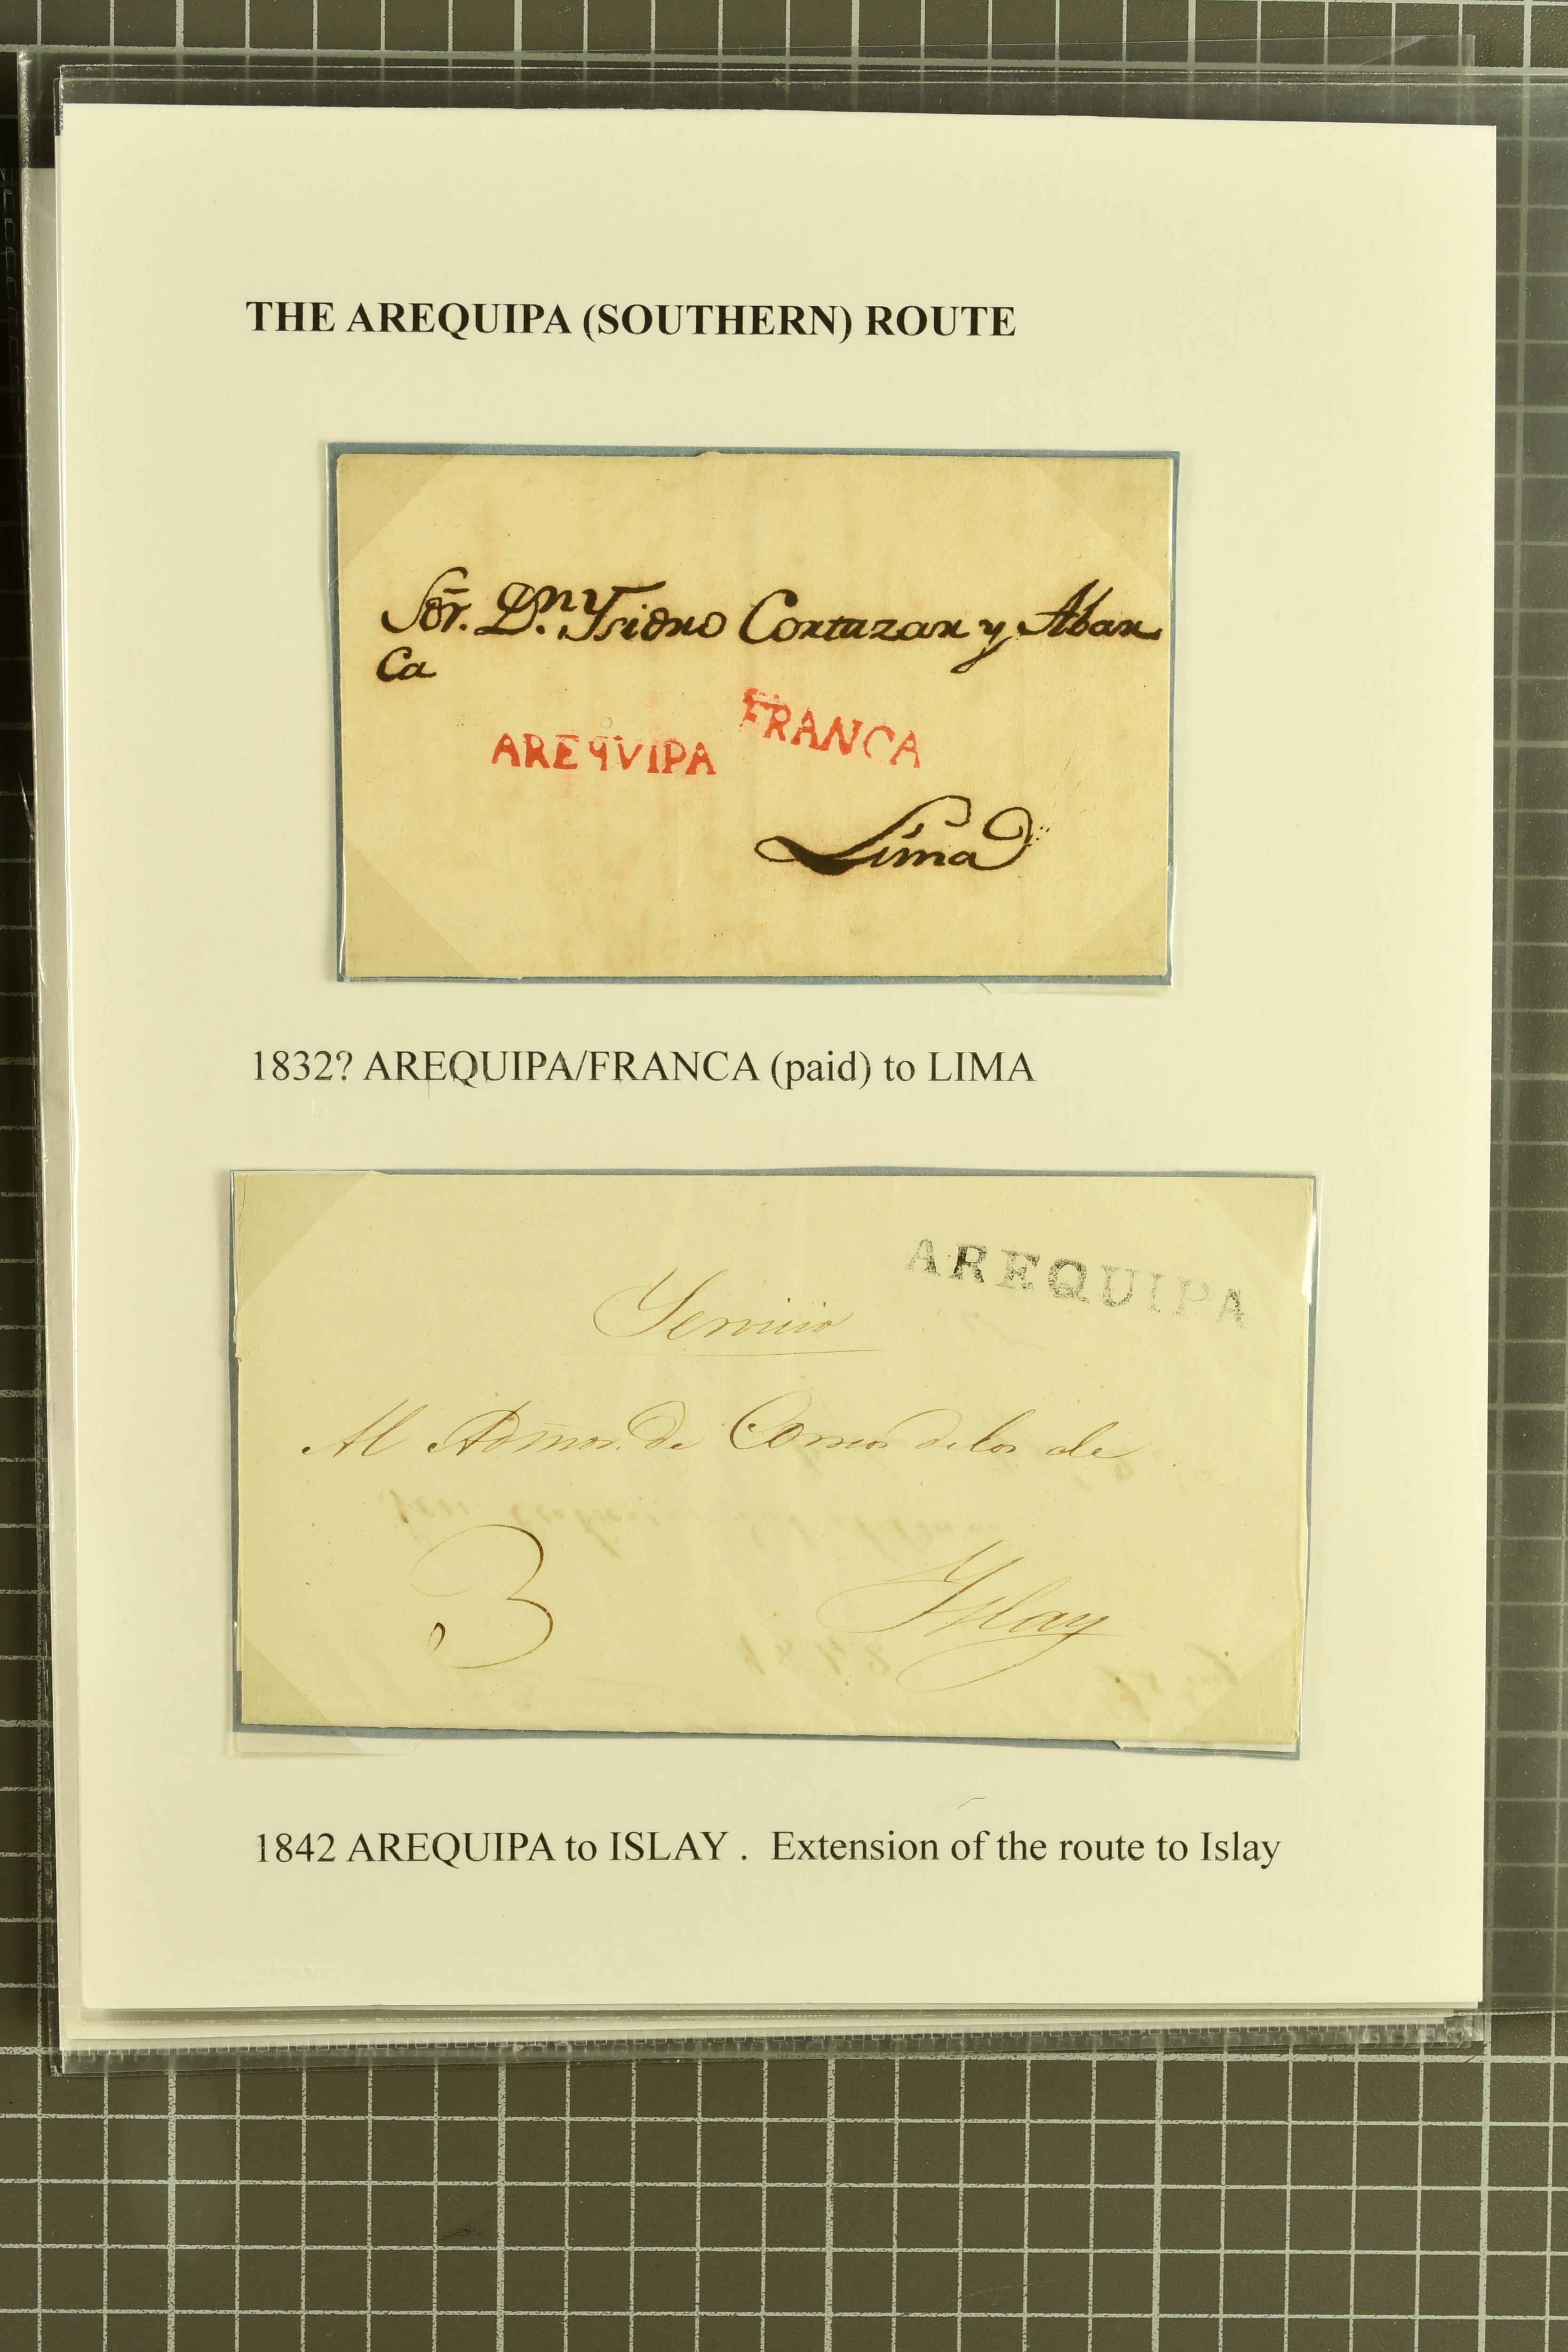 THE AREQUIPA (SOUTHERN) ROUTE
Sōr. Dn. Ysidro Cortazar y Abar
Ca
AREqVIPA FRANCA
Lima
1832? AREQUIPA/FRANCA (paid) to LIMA
AREQUIPA
Servicio
Al Admor. de Correos de los de
3 Yslay
1842
1842 AREQUIPA to ISLAY . Extension of the route to Islay